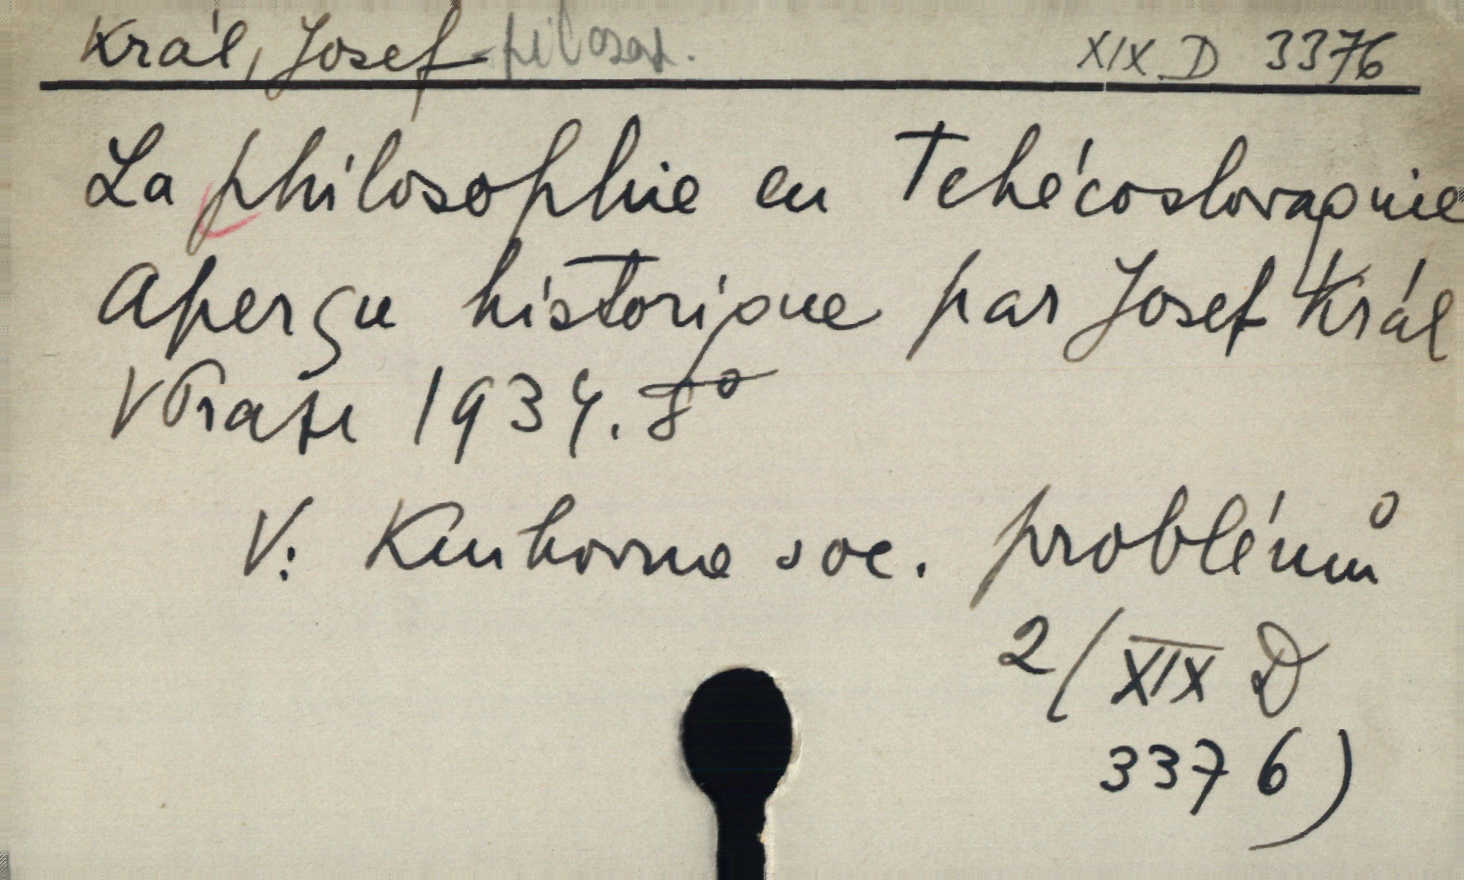 Král, Josef - filosof. XIX D 3376
La philosophie en Tchécoslovaquie
Aperçu historique par Josef Král
V Praze 1934. 8°
V: Knihovna soc. problémů
2/XIX D
3376)